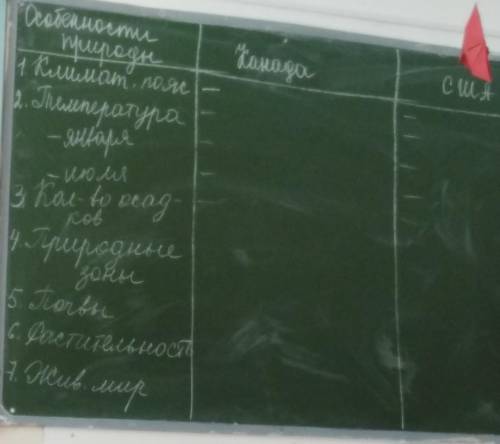 Особенности
природы
Канада
США
1. Климат. пояс
2. Температура
- января
- июля
3. Кол-во осад-
ков
4. Природные
зоны
5. Почвы
6. Растительность
7. Жив. мир